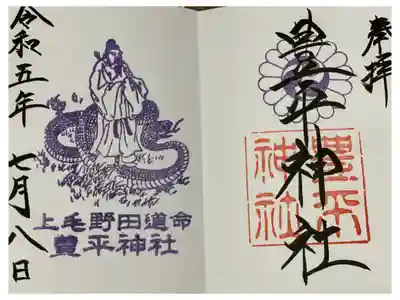 奉拝
豊平神社
豊平
神社
上毛野田道命
豊平神社
令和五年 七月八日